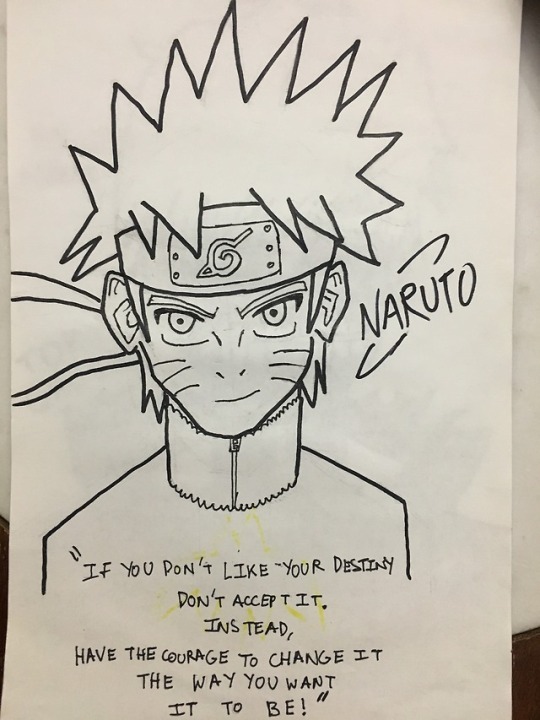 NARUTO
"IF YOU DON'T LIKE YOUR DESTINY
DON'T ACCEPT IT.
INSTEAD,
HAVE THE COURAGE TO CHANGE IT
THE WAY YOU WANT
IT TO BE!"